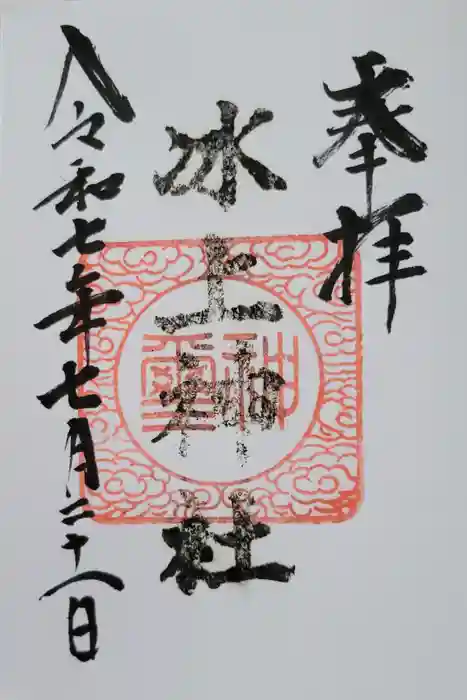 奉拝
氷上神社
令和七年七月二十一日